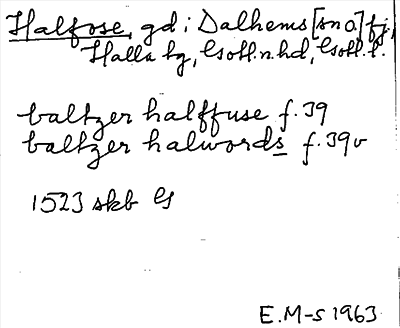 Halfose, gd i Dalhems [sn o] fj,
Halla tg, Gotl. n. hd, Gotl. l.
baltzer halffuse f. 39
baltzer halwords f. 39v
1523 skb G
E. M-s 1963